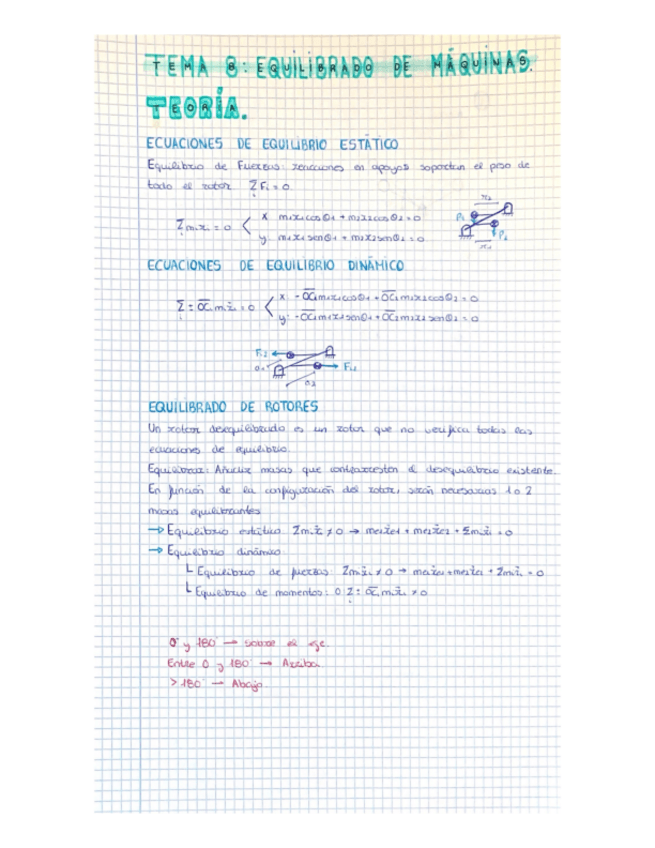 TEMA 8: EQUILIBRADO DE MÁQUINAS.
TEORÍA.
ECUACIONES DE EQUILIBRIO ESTÁTICO
Equilibrio de Fuerzas: reacciones en apoyos soportan el peso de
todo el rotor. ΣFi = 0.
x m1x1cosθ1 + m2x2cosθ2 = 0
Σmixi = 0 <
y: m1x1senθ1 + m2x2senθ2 = 0
P1
P2
ECUACIONES DE EQUILIBRIO DINÁMICO
x - OC1m1x1cosθ1 + OC2m2x2cosθ2 = 0
Σ = OCi mixi = 0 <
y: - OC1m1x1senθ1 + OC2m2x2senθ2 = 0
Fi2
Fi1
a2
EQUILIBRADO DE ROTORES
Un rotor desequilibrado es un rotor que no verifica todas las
ecuaciones de equilibrio.
Equilibrar: Añadir masas que contrarresten el desequilibrio existente.
En función de la configuración del rotor, serán necesarias 1 o 2
masas equilibrantes
→ Equilibrio estático: Σmixi ≠ 0 → me1xe1 + me2xe2 + Σmixi = 0
→ Equilibrio dinámico:
└ Equilibrio de fuerzas: Σmixi ≠ 0 → me1xe1 + me2xe2 + Σmixi = 0
└ Equilibrio de momentos: 0 Σ: OCi mixi ≠ 0
0° y 180° → sobre el eje.
Entre 0 y 180° → Arriba.
> 180° → Abajo.